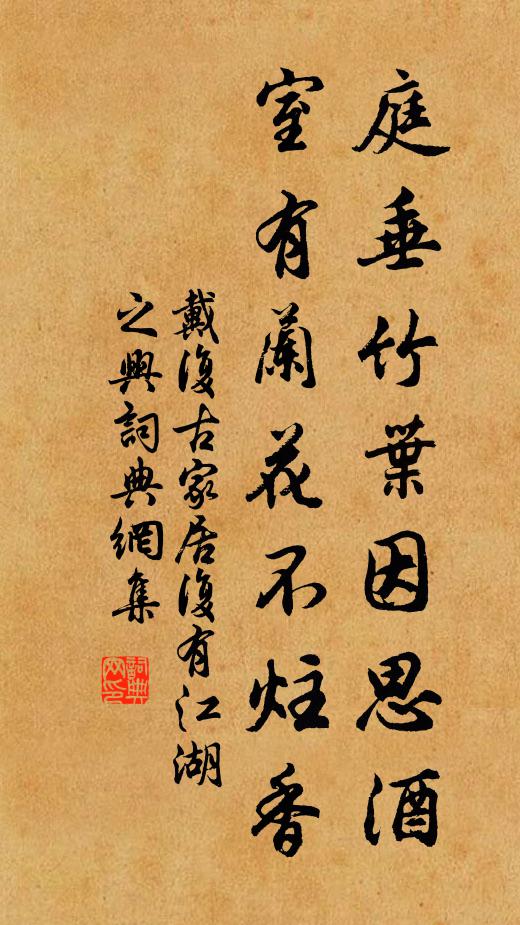 庭垂竹葉因思酒
室有蘭花不炷香
戴復古家居復有江湖
之興詞典網集
詞典
网印